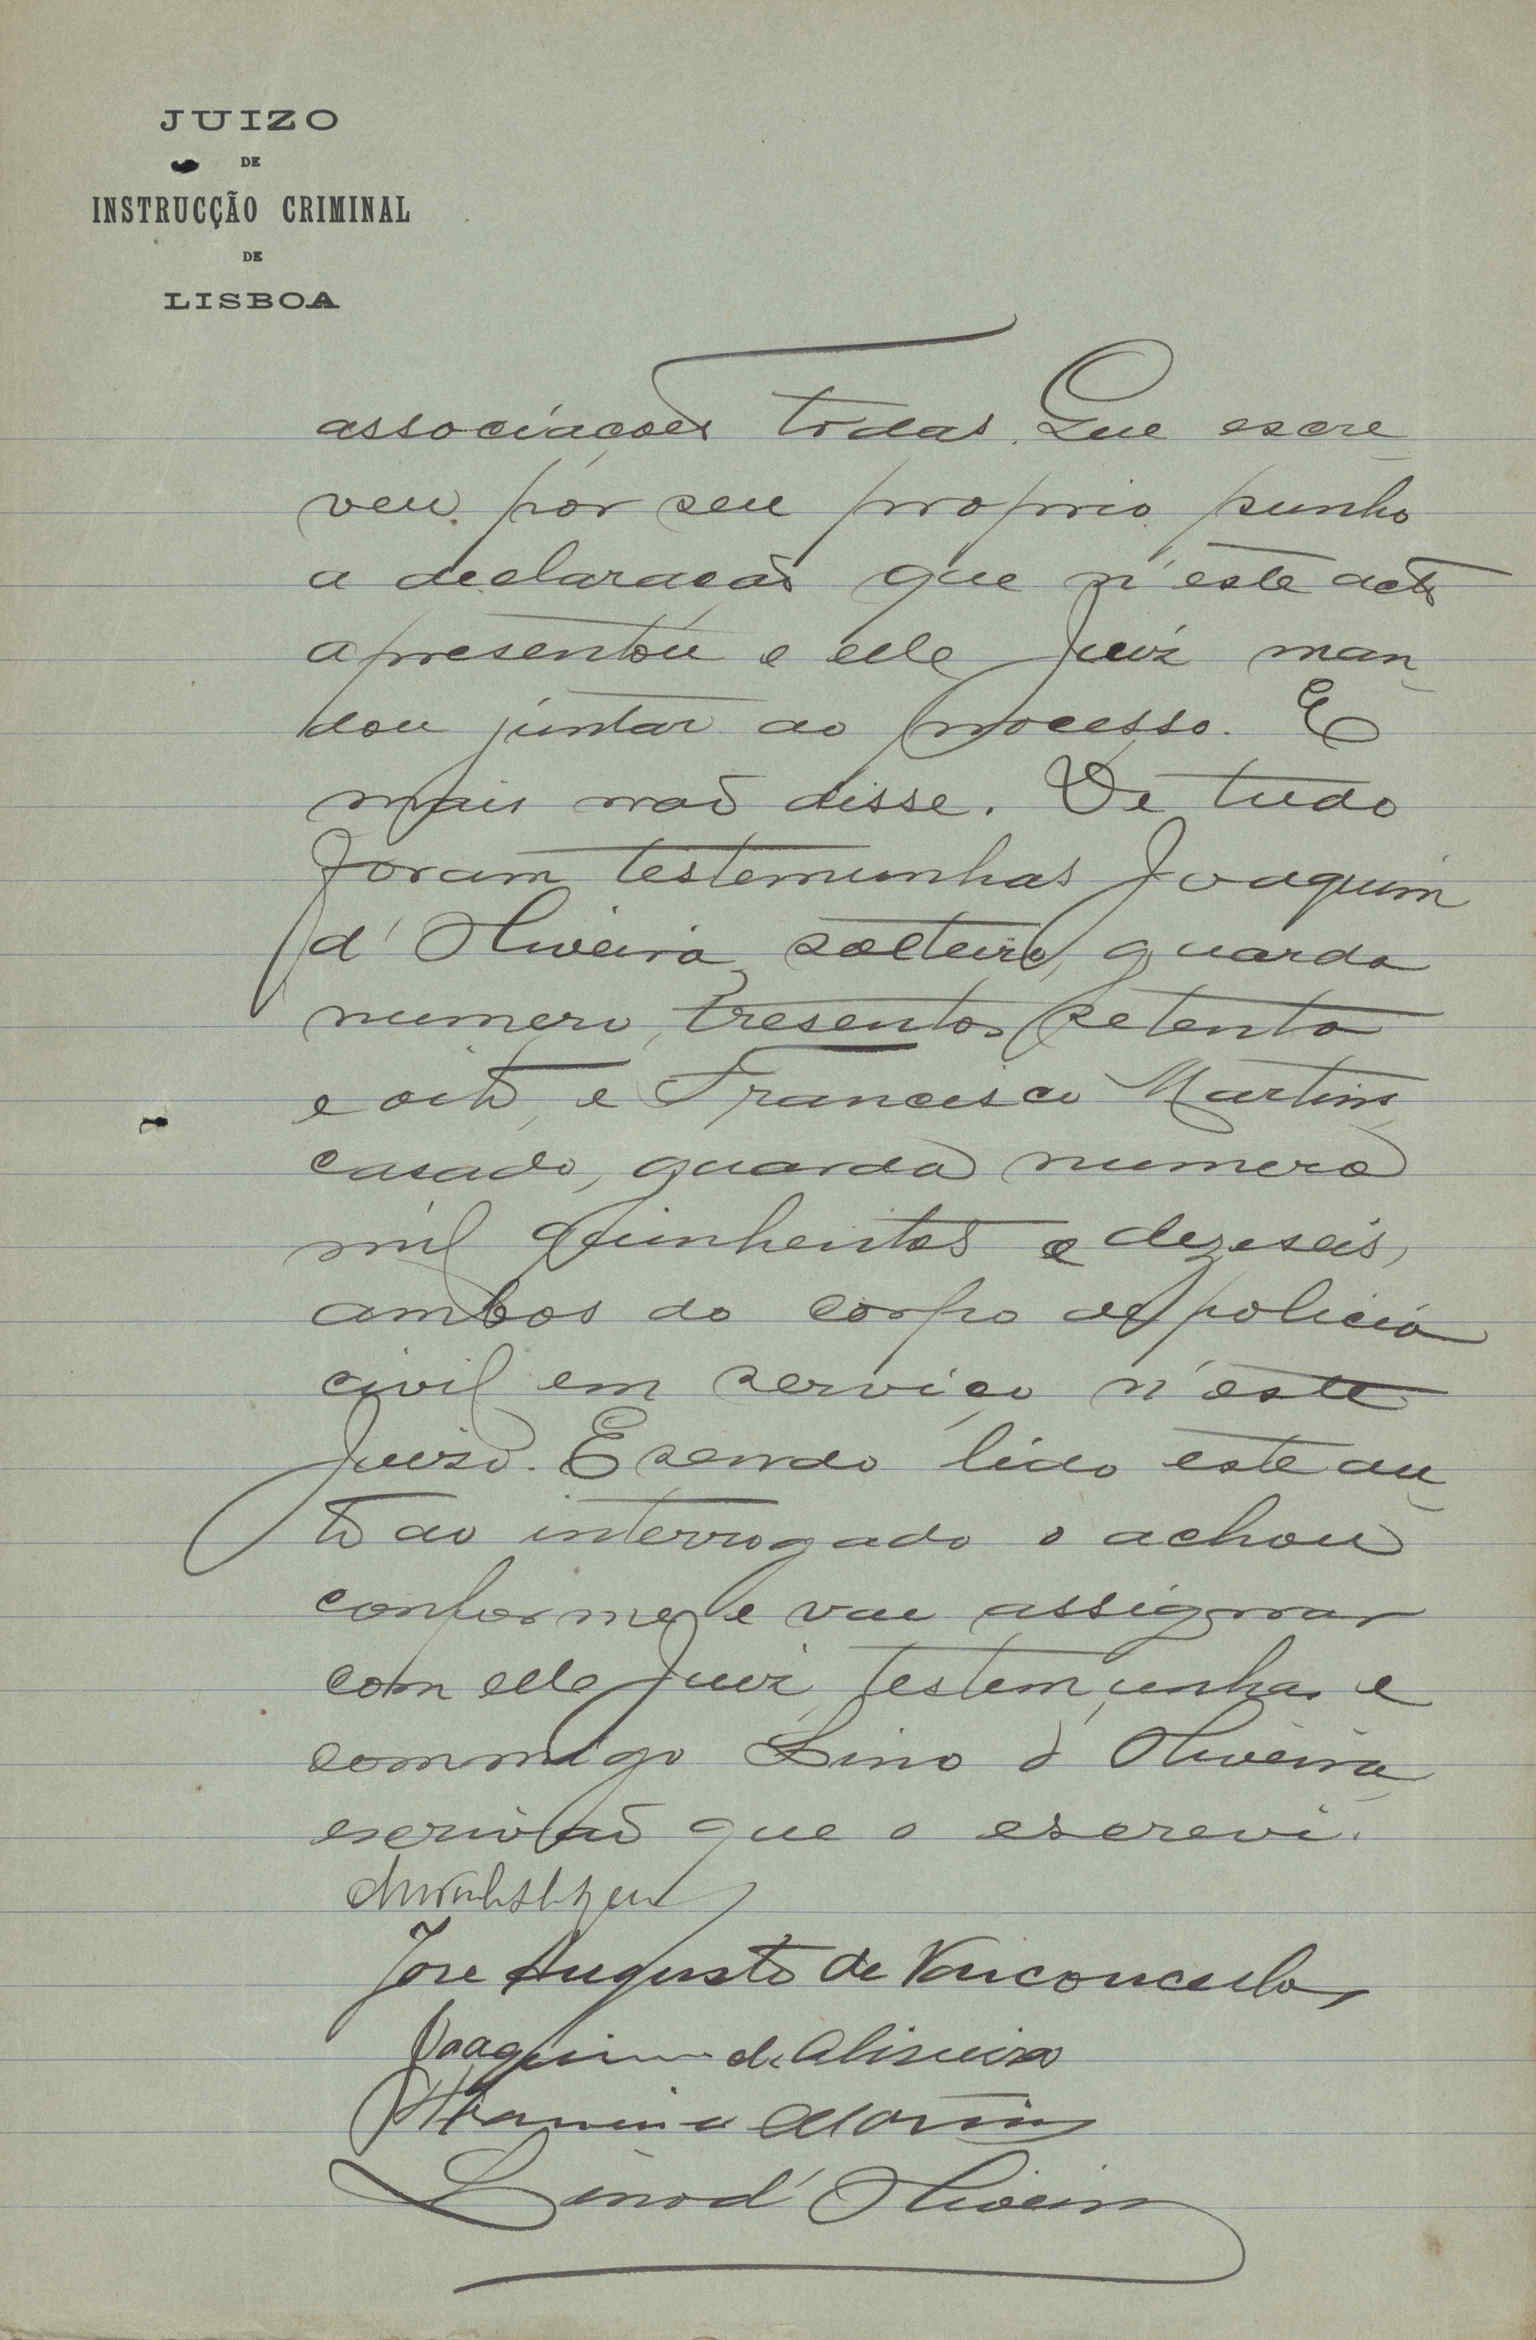 JUIZO
DE
INSTRUCÇÃO CRIMINAL
DE
LISBOA
associações todas. Que escre
veu por seu proprio punho
a declaração que n'este acto
apresentou e elle Juiz man
dou juntar ao processo. E
mais não disse. De tudo
foram testemunhas Joaquim
d'Oliveira, solteiro, guarda
numero tresentos setenta
e oito, e Francisco Martins
casado, guarda numero
mil quinhentos e dezeseis,
ambos do corpo de policia
civil em serviço n'este
Juizo. E sendo lido este au
to ao interrogado o achou
conforme e vae assignar
com elle Juiz, testemunhas e
commigo Lino d'Oliveira
escrivão que o escrevi.
José Augusto de Vasconcellos
Joaquim de Oliveira
Francisco Martins
Lino d'Oliveira